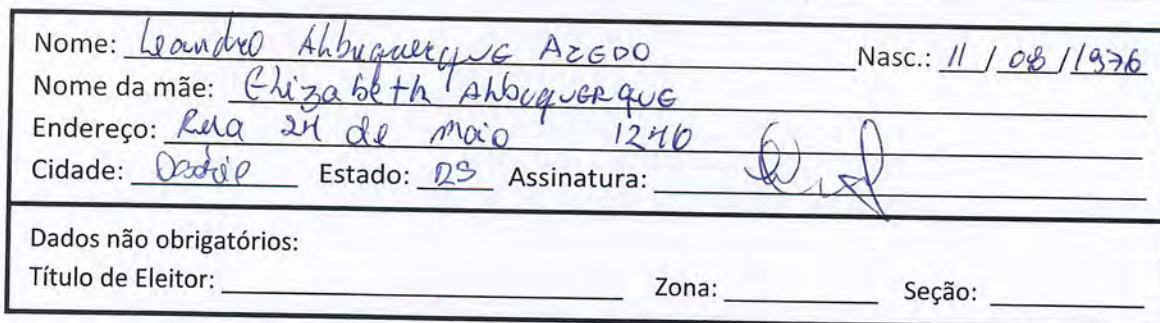 Nome: Leandro Ahbuquerque AZEDO Nasc.: 11 / 08 / 1976
Nome da mãe: Ehizabeth AhbuqUERQUE
Endereço: Rua 24 de maio 1240
Cidade: Estado: RS Assinatura:
Dados não obrigatórios:
Título de Eleitor: Zona: Seção: